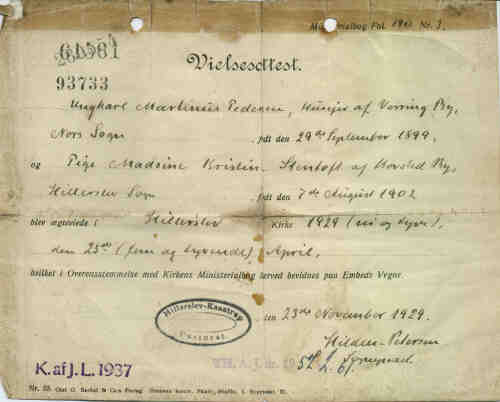 Ministerialbog Fol. Nr. 3.
Vielsesattest.
93733
Ungkarl Martinus Pedersen, Husejer af Vorring By,
Nors Sogn , født den 29de September 1899.
og Pige Madsine Kristin Stentoft af Hovsted By,
Hillerslev Sogn , født den 7de August 1902
blev ægteviede i Hillerslev Kirke 1929 (ni og tyve),
den 25de (fem og tyvende) April,
hvilket i Overensstemmelse med Kirkens Ministerialbog herved bevidnes paa Embeds Vegne.
Hillerslev-Kaastrup
Pastorat.
den 23de November 1929.
Hilden-Petersen
Sognepræst
K. af J. L. 1937
Nr. 53.